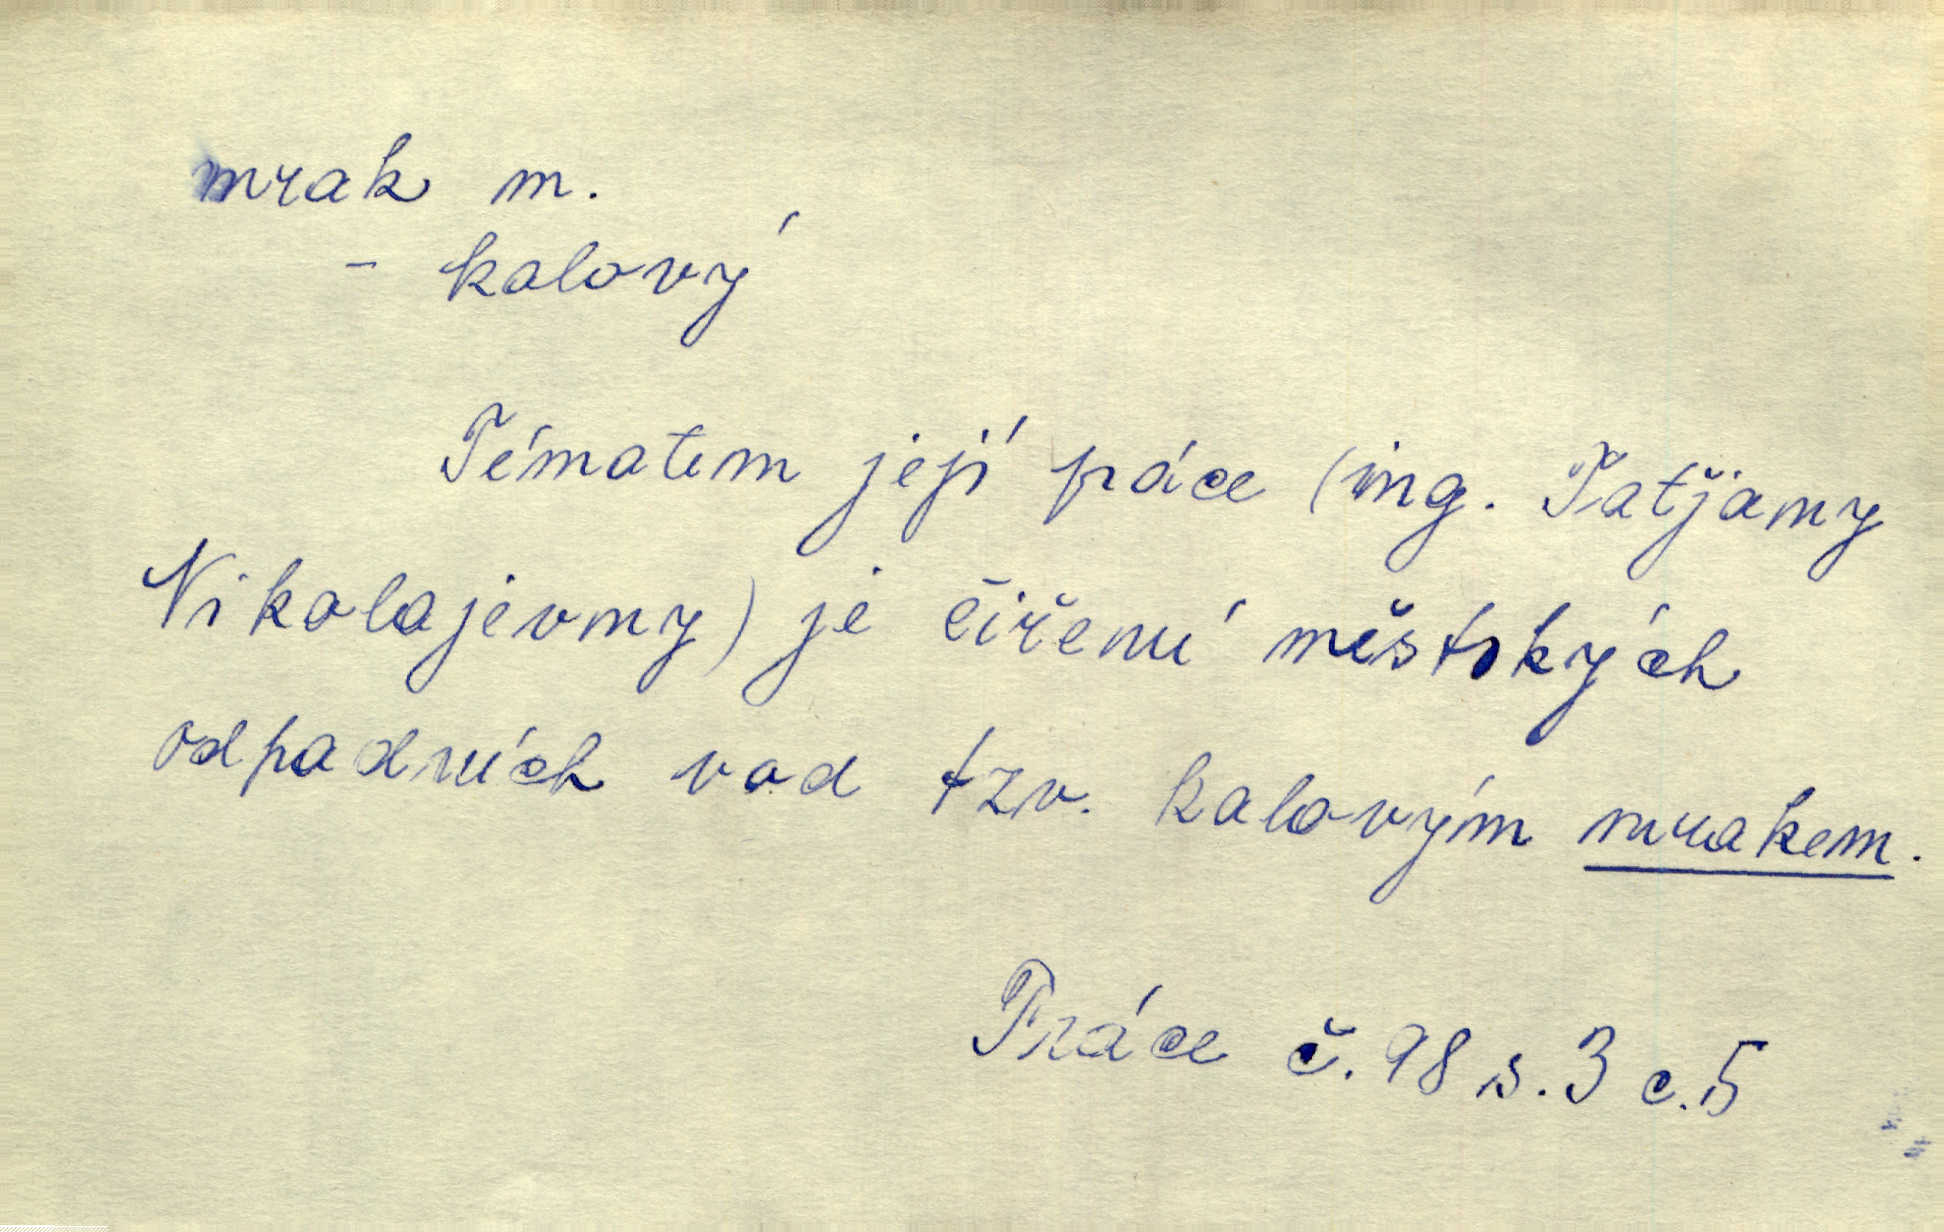 mrak m.
- kalový
Tématem její práce (ing. Taťjany
Nikolajevny) je čiření městských
odpadních vod tzv. kalovým mrakem.
Práce č. 98 s. 3 c. 5